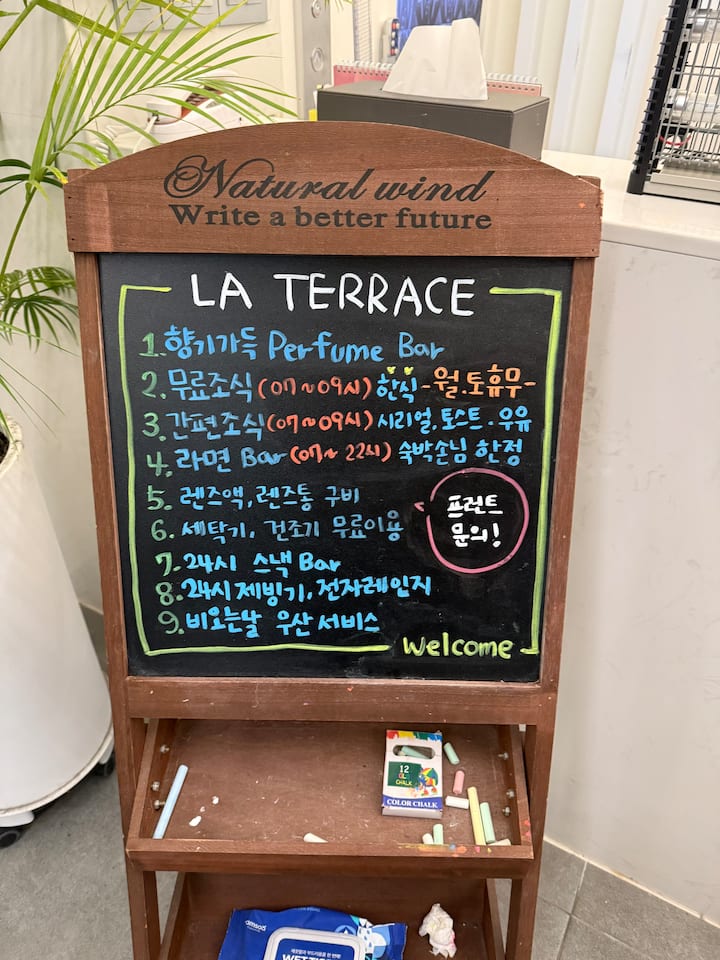 Natural wind
Write a better future
LA TERRACE
1. 향기가득 Perfume Bar
2. 무료조식 (07~09시) 한식 -월.토휴무-
3. 간편조식 (07~09시) 시리얼, 토스트·우유
4. 라면 Bar (07~22시) 숙박손님 한정
5. 렌즈액, 렌즈통 구비
6. 세탁기, 건조기 무료이용
프런트
문의!
7. 24시 스낵 Bar
8. 24시 제빙기, 전자레인지
9. 비오는날 우산 서비스
Welcome
12
CHALK
COLOR CHALK